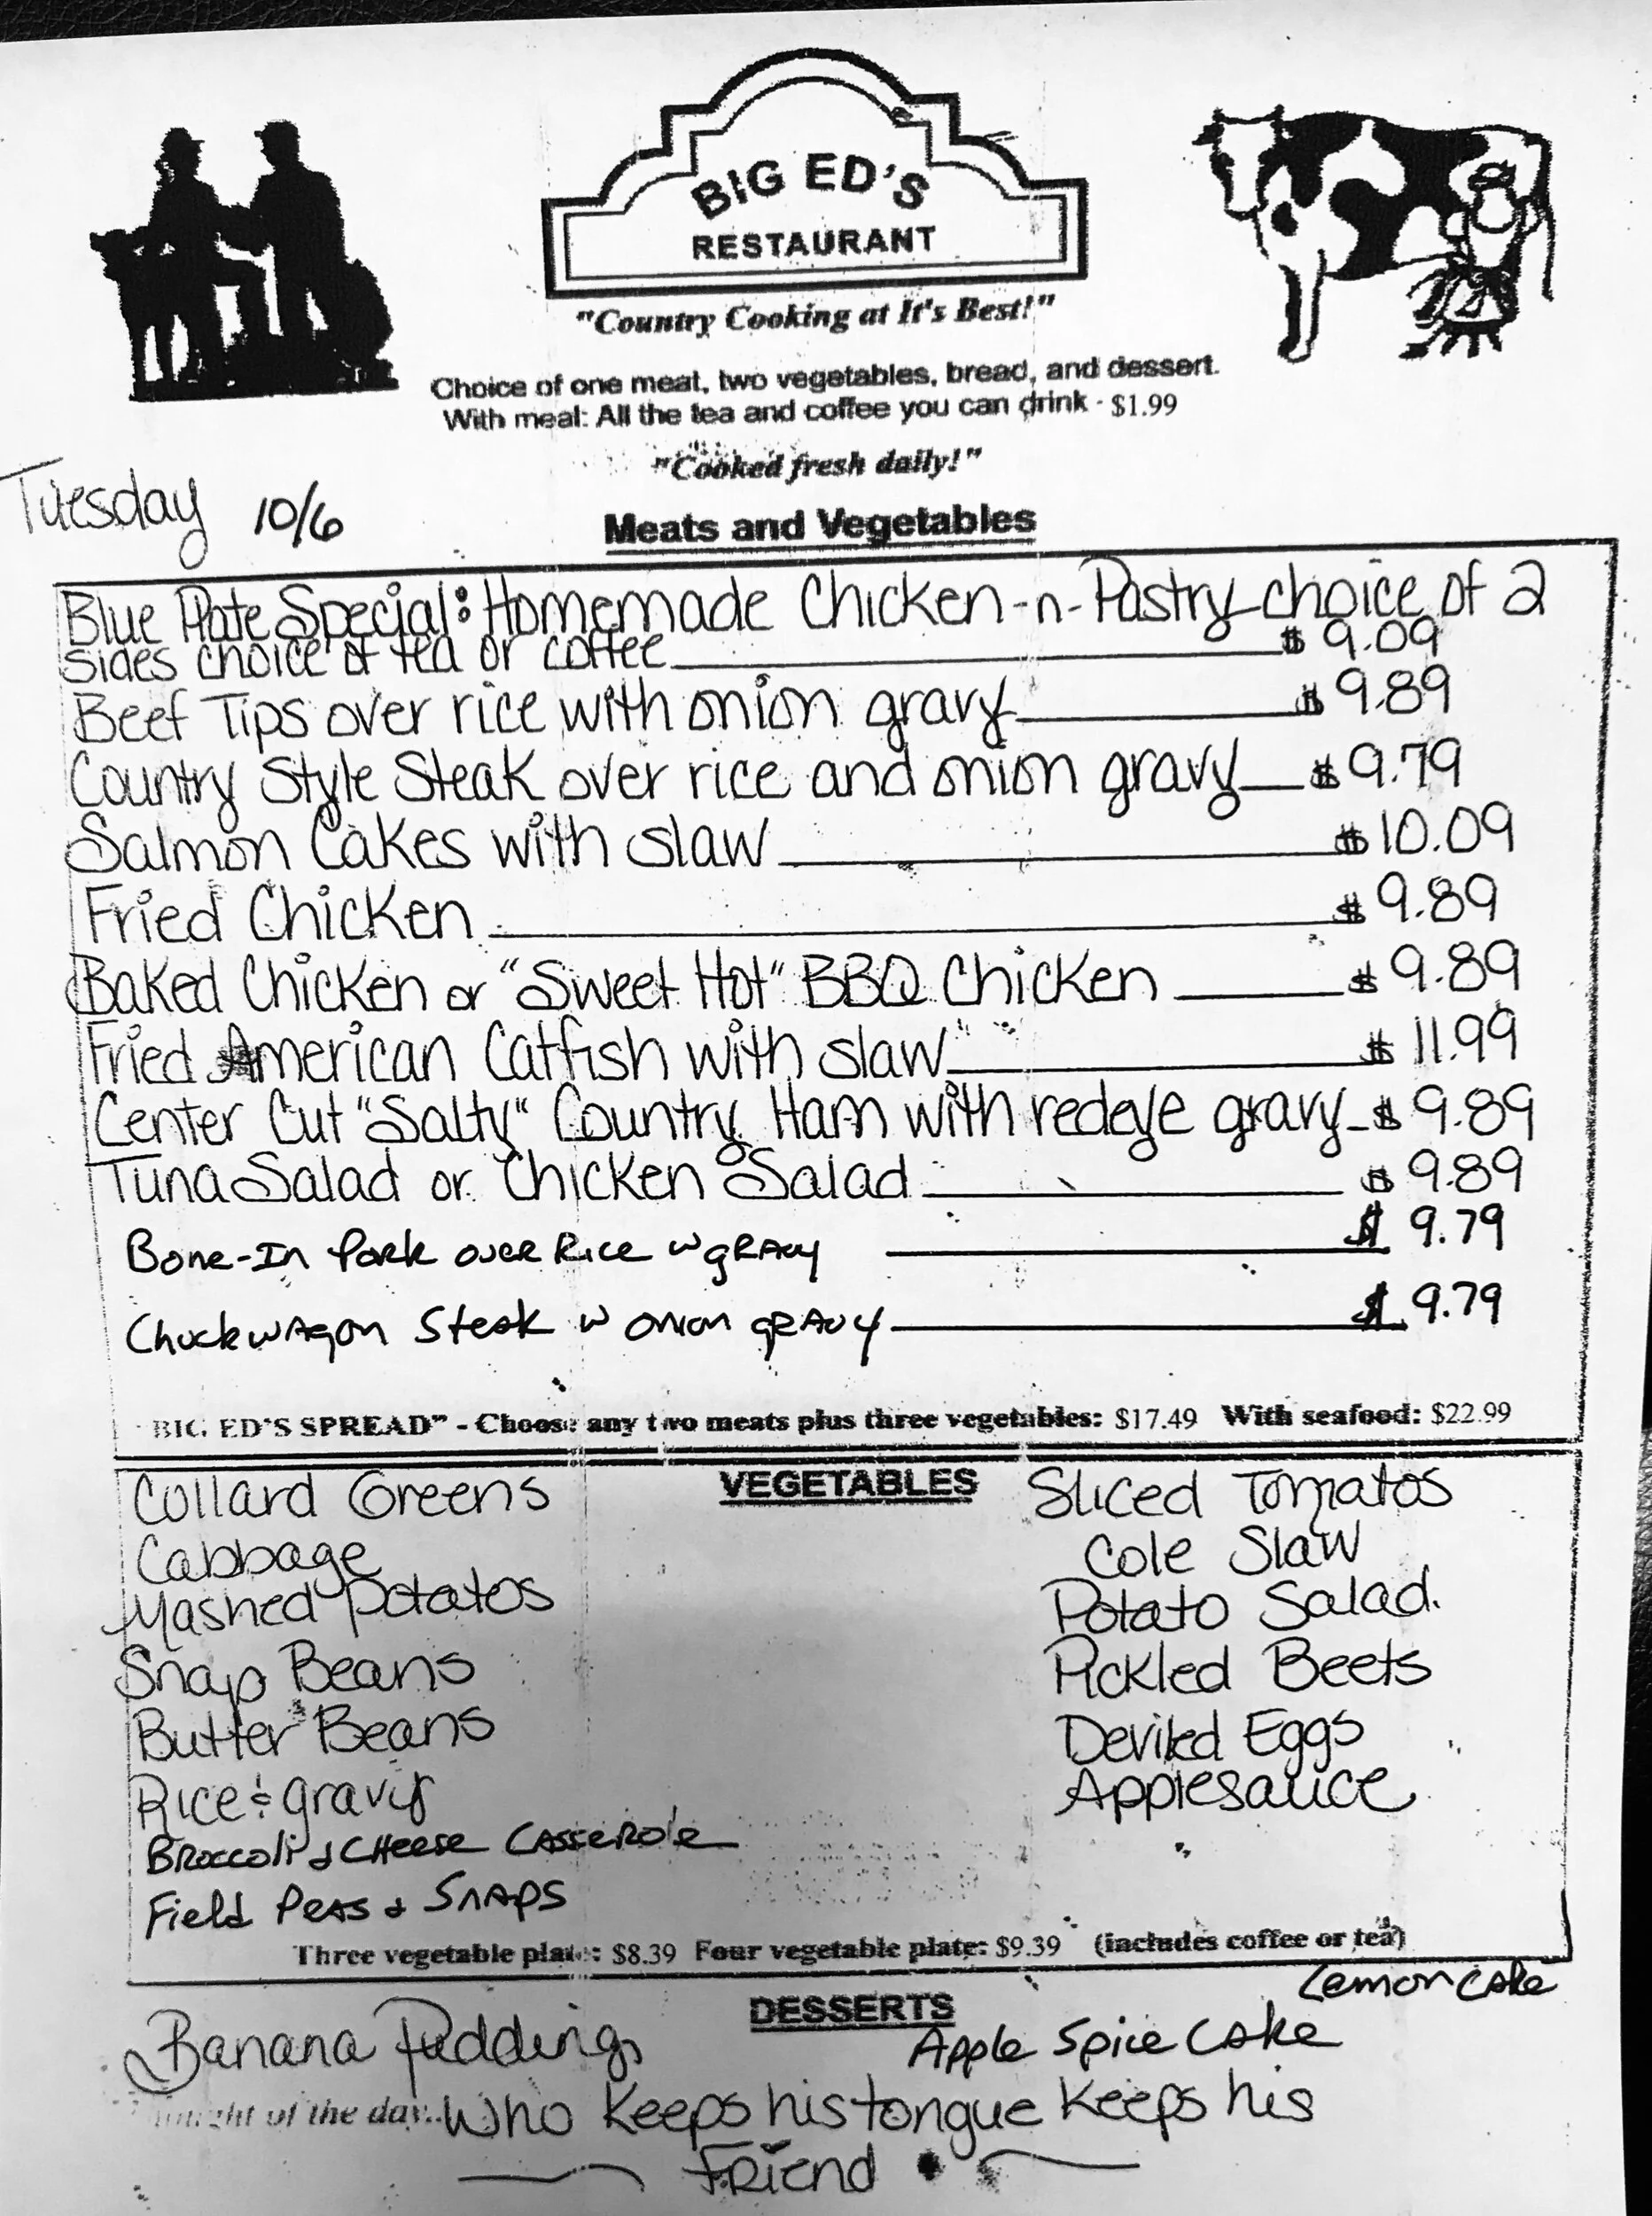 BIG ED'S
RESTAURANT
"Country Cooking at It's Best!"
Choice of one meat, two vegetables, bread, and dessert.
With meal: All the tea and coffee you can drink - $1.99
"Cooked fresh daily!"
Tuesday 10/6
Meats and Vegetables
Blue Plate Special: Homemade Chicken-n-Pastry choice of 2
sides choice of tea or coffee $ 9.09
Beef Tips over rice with onion gravy $ 9.89
Country Style Steak over rice and onion gravy $ 9.79
Salmon Cakes with slaw $ 10.09
Fried Chicken $ 9.89
Baked Chicken or "Sweet Hot" BBQ Chicken $ 9.89
Fried American Catfish with slaw $ 11.99
Center Cut "Salty" Country Ham with redeye gravy $ 9.89
Tuna Salad or Chicken Salad $ 9.89
Bone-In Pork over Rice w gravy $ 9.79
Chuckwagon Steak w onion gravy $ 9.79
BIG ED'S SPREAD" - Choose any two meats plus three vegetables: $17.49 With seafood: $22.99
VEGETABLES
Collard Greens
Cabbage
Mashed Potatos
Snap Beans
Butter Beans
Rice & gravy
Broccoli & Cheese Casserole
Field Peas & Snaps
Sliced Tomatos
Cole Slaw
Potato Salad.
Pickled Beets
Deviled Eggs
Applesauce
Three vegetable plate: $8.39 Four vegetable plate: $9.39 (includes coffee or tea)
DESSERTS
Lemon Cake
Banana Pudding
Apple Spice Cake
of the day... Who keeps his tongue keeps his
Friend